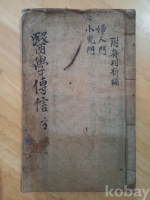 附每朔新編
婦人門
小兒門
醫學傳信 亨
kobay